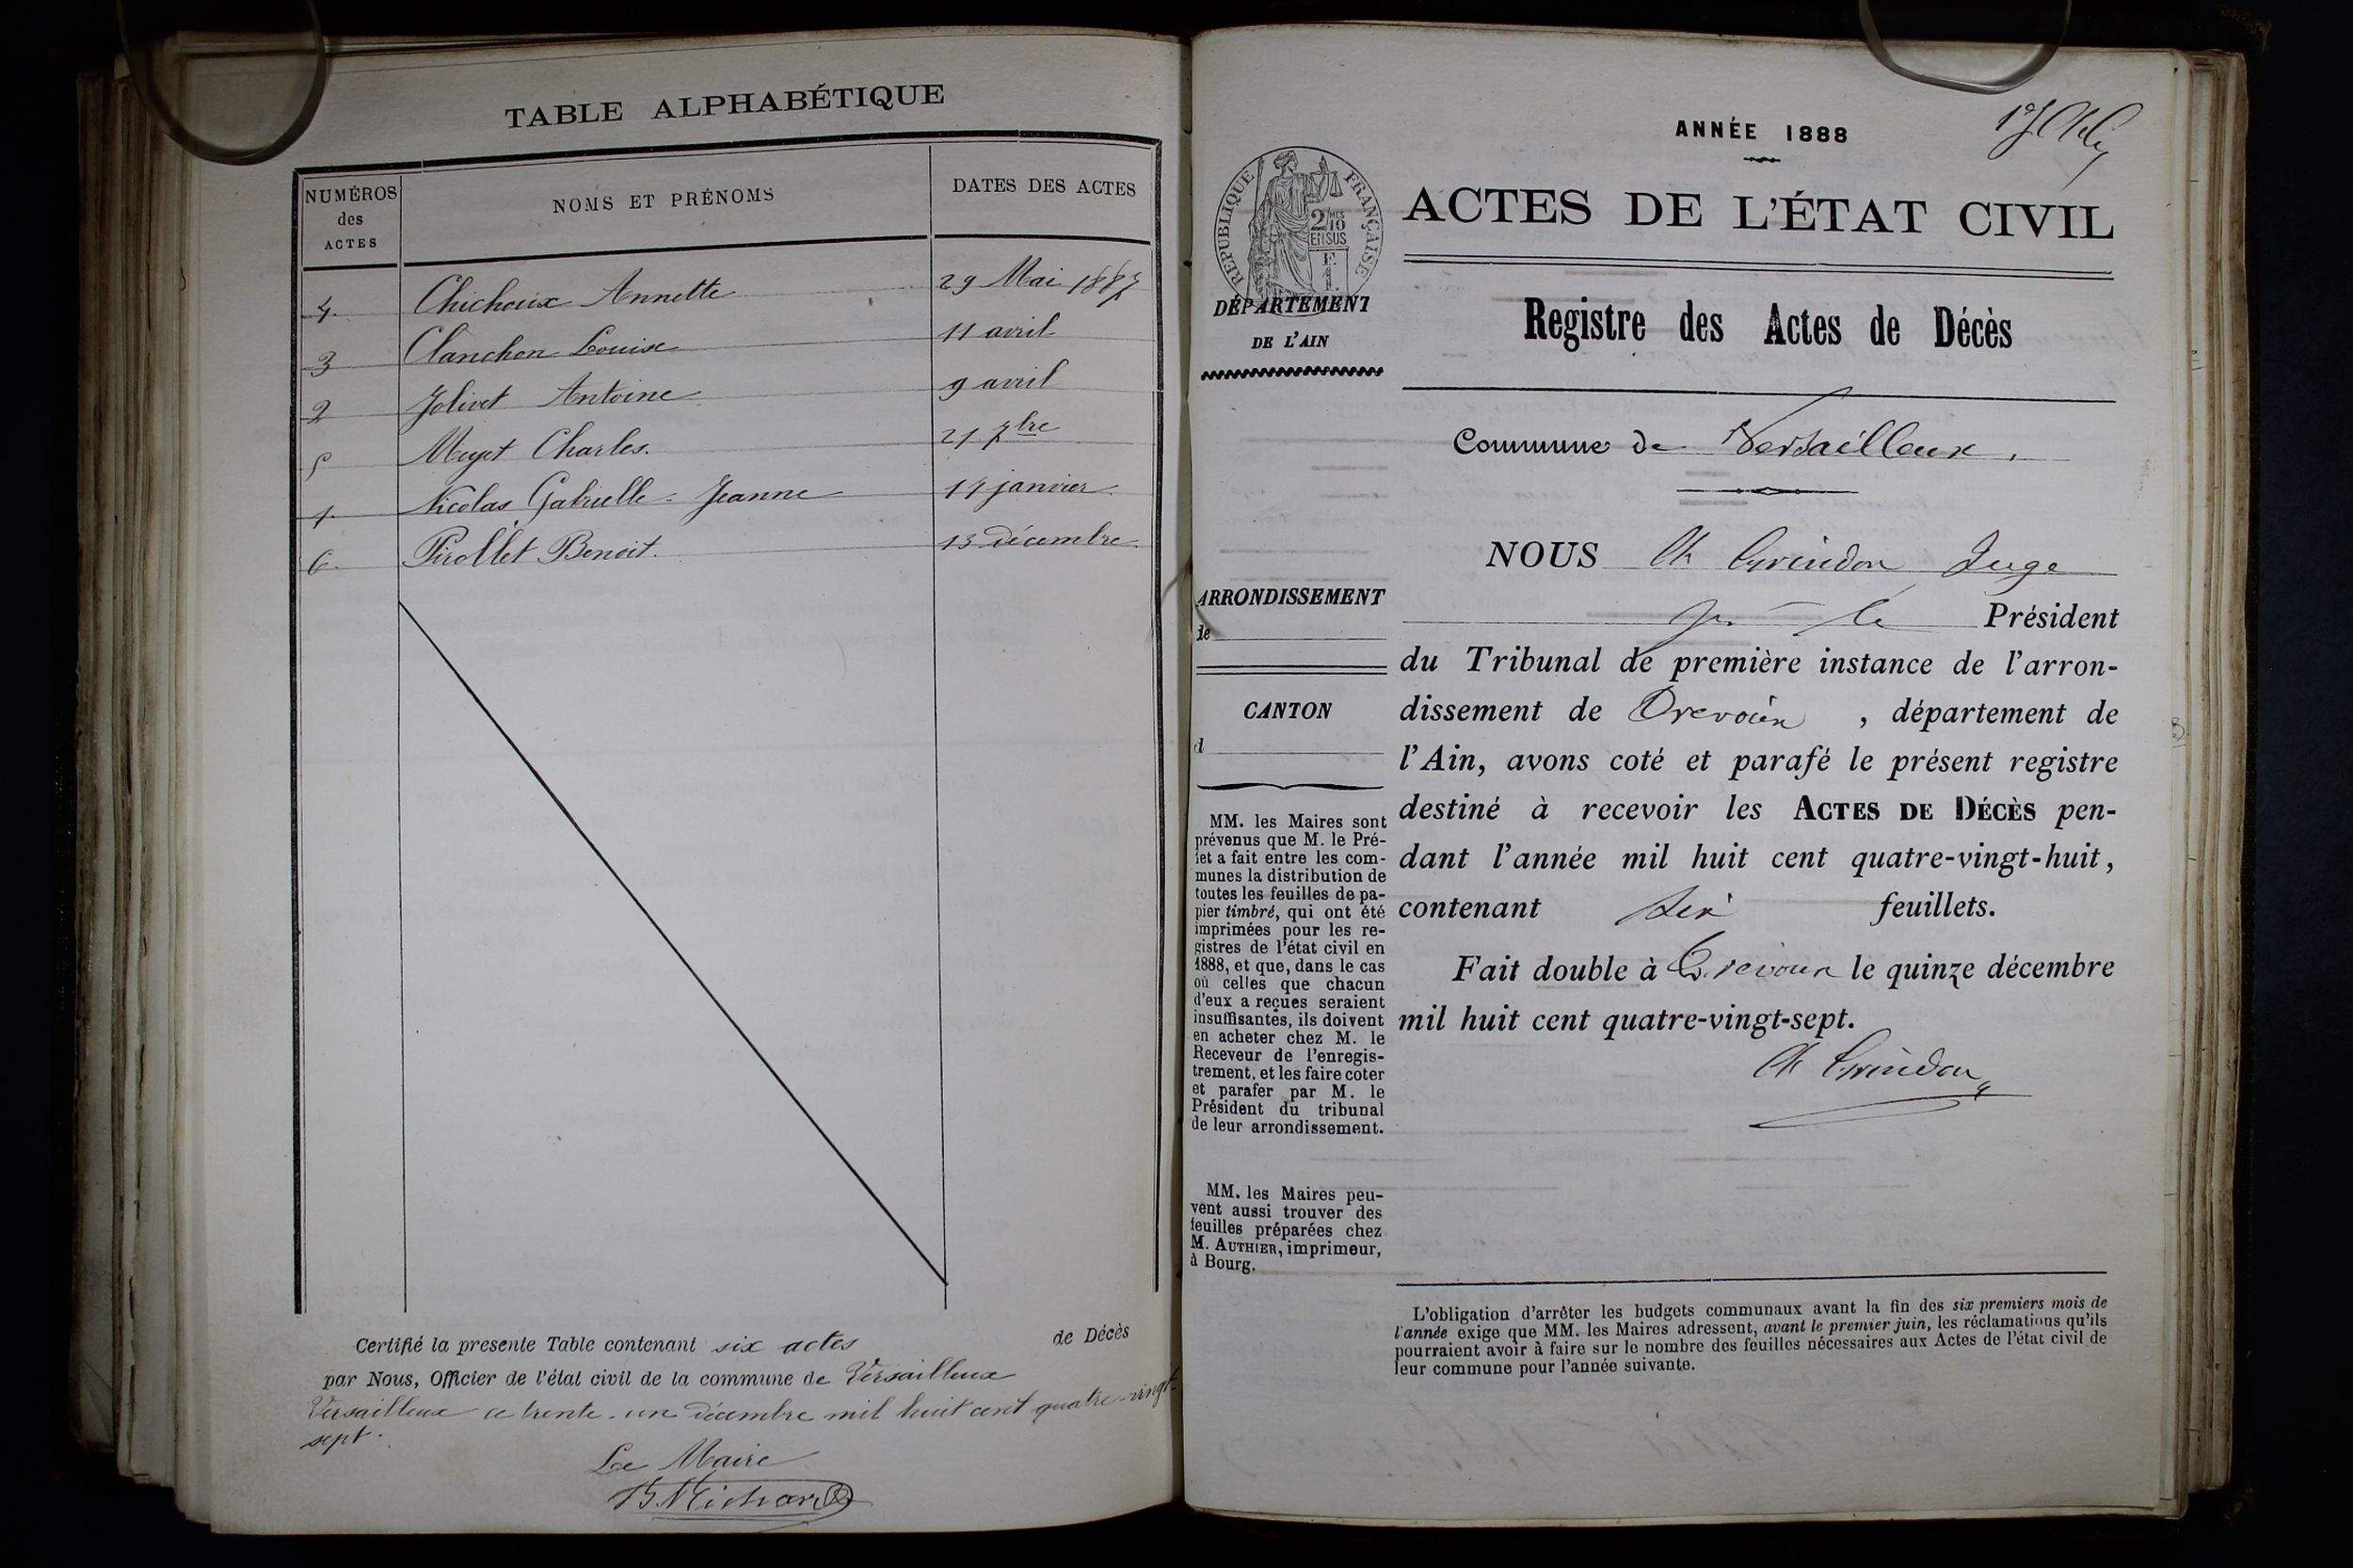 TABLE ALPHABÉTIQUE
NUMÉROS des ACTES NOMS ET PRÉNOMS DATES DES ACTES
4. Chichoux Annette 29 Mai 1887
3 Clanchon Louise 11 avril
2 Jolivet Antoine 9 avril
5 Muyet Charles. 21 7bre
1. Nicolas Gabrielle - Jeanne 14 janvier
6. Pirollet Benoit. 13 décembre
Certifié la presente Table contenant six actes de Décès
par Nous, Officier de l'état civil de la commune de Versailleux
Versailleux ce trente-un décembre mil huit cent quatre-vingt-
sept.
Le Maire
B. Michard
ANNÉE 1888
ACTES DE L'ÉTAT CIVIL
RÉPUBLIQUE FRANÇAISE
2/10MES
EN SUS
F.
1.
DÉPARTEMENT
DE L'AIN
Registre des Actes de Décès
Commune de Versailleux.
ARRONDISSEMENT
de
CANTON
d
MM. les Maires sont
prévenus que M. le Pré-
fet a fait entre les com-
munes la distribution de
toutes les feuilles de pa-
pier timbré, qui ont été
imprimées pour les re-
gistres de l'état civil en
1888, et que, dans le cas
où celles que chacun
d'eux a reçues seraient
insuffisantes, ils doivent
en acheter chez M. le
Receveur de l'enregis-
trement, et les faire coter
et parafer par M. le
Président du tribunal
de leur arrondissement.
MM. les Maires peu-
vent aussi trouver des
feuilles préparées chez
M. AUTHIER, imprimeur,
à Bourg.
NOUS Ch Grindon Juge
Président
du Tribunal de première instance de l'arron-
dissement de Trevoux , département de
l'Ain, avons coté et parafé le présent registre
destiné à recevoir les ACTES DE DÉCÈS pen-
dant l'année mil huit cent quatre-vingt-huit,
contenant six feuillets.
Fait double à Trevoux le quinze décembre
mil huit cent quatre-vingt-sept.
Ch Grindon
L'obligation d'arrêter les budgets communaux avant la fin des six premiers mois de
l'année exige que MM. les Maires adressent, avant le premier juin, les réclamations qu'ils
pourraient avoir à faire sur le nombre des feuilles nécessaires aux Actes de l'état civil de
leur commune pour l'année suivante.